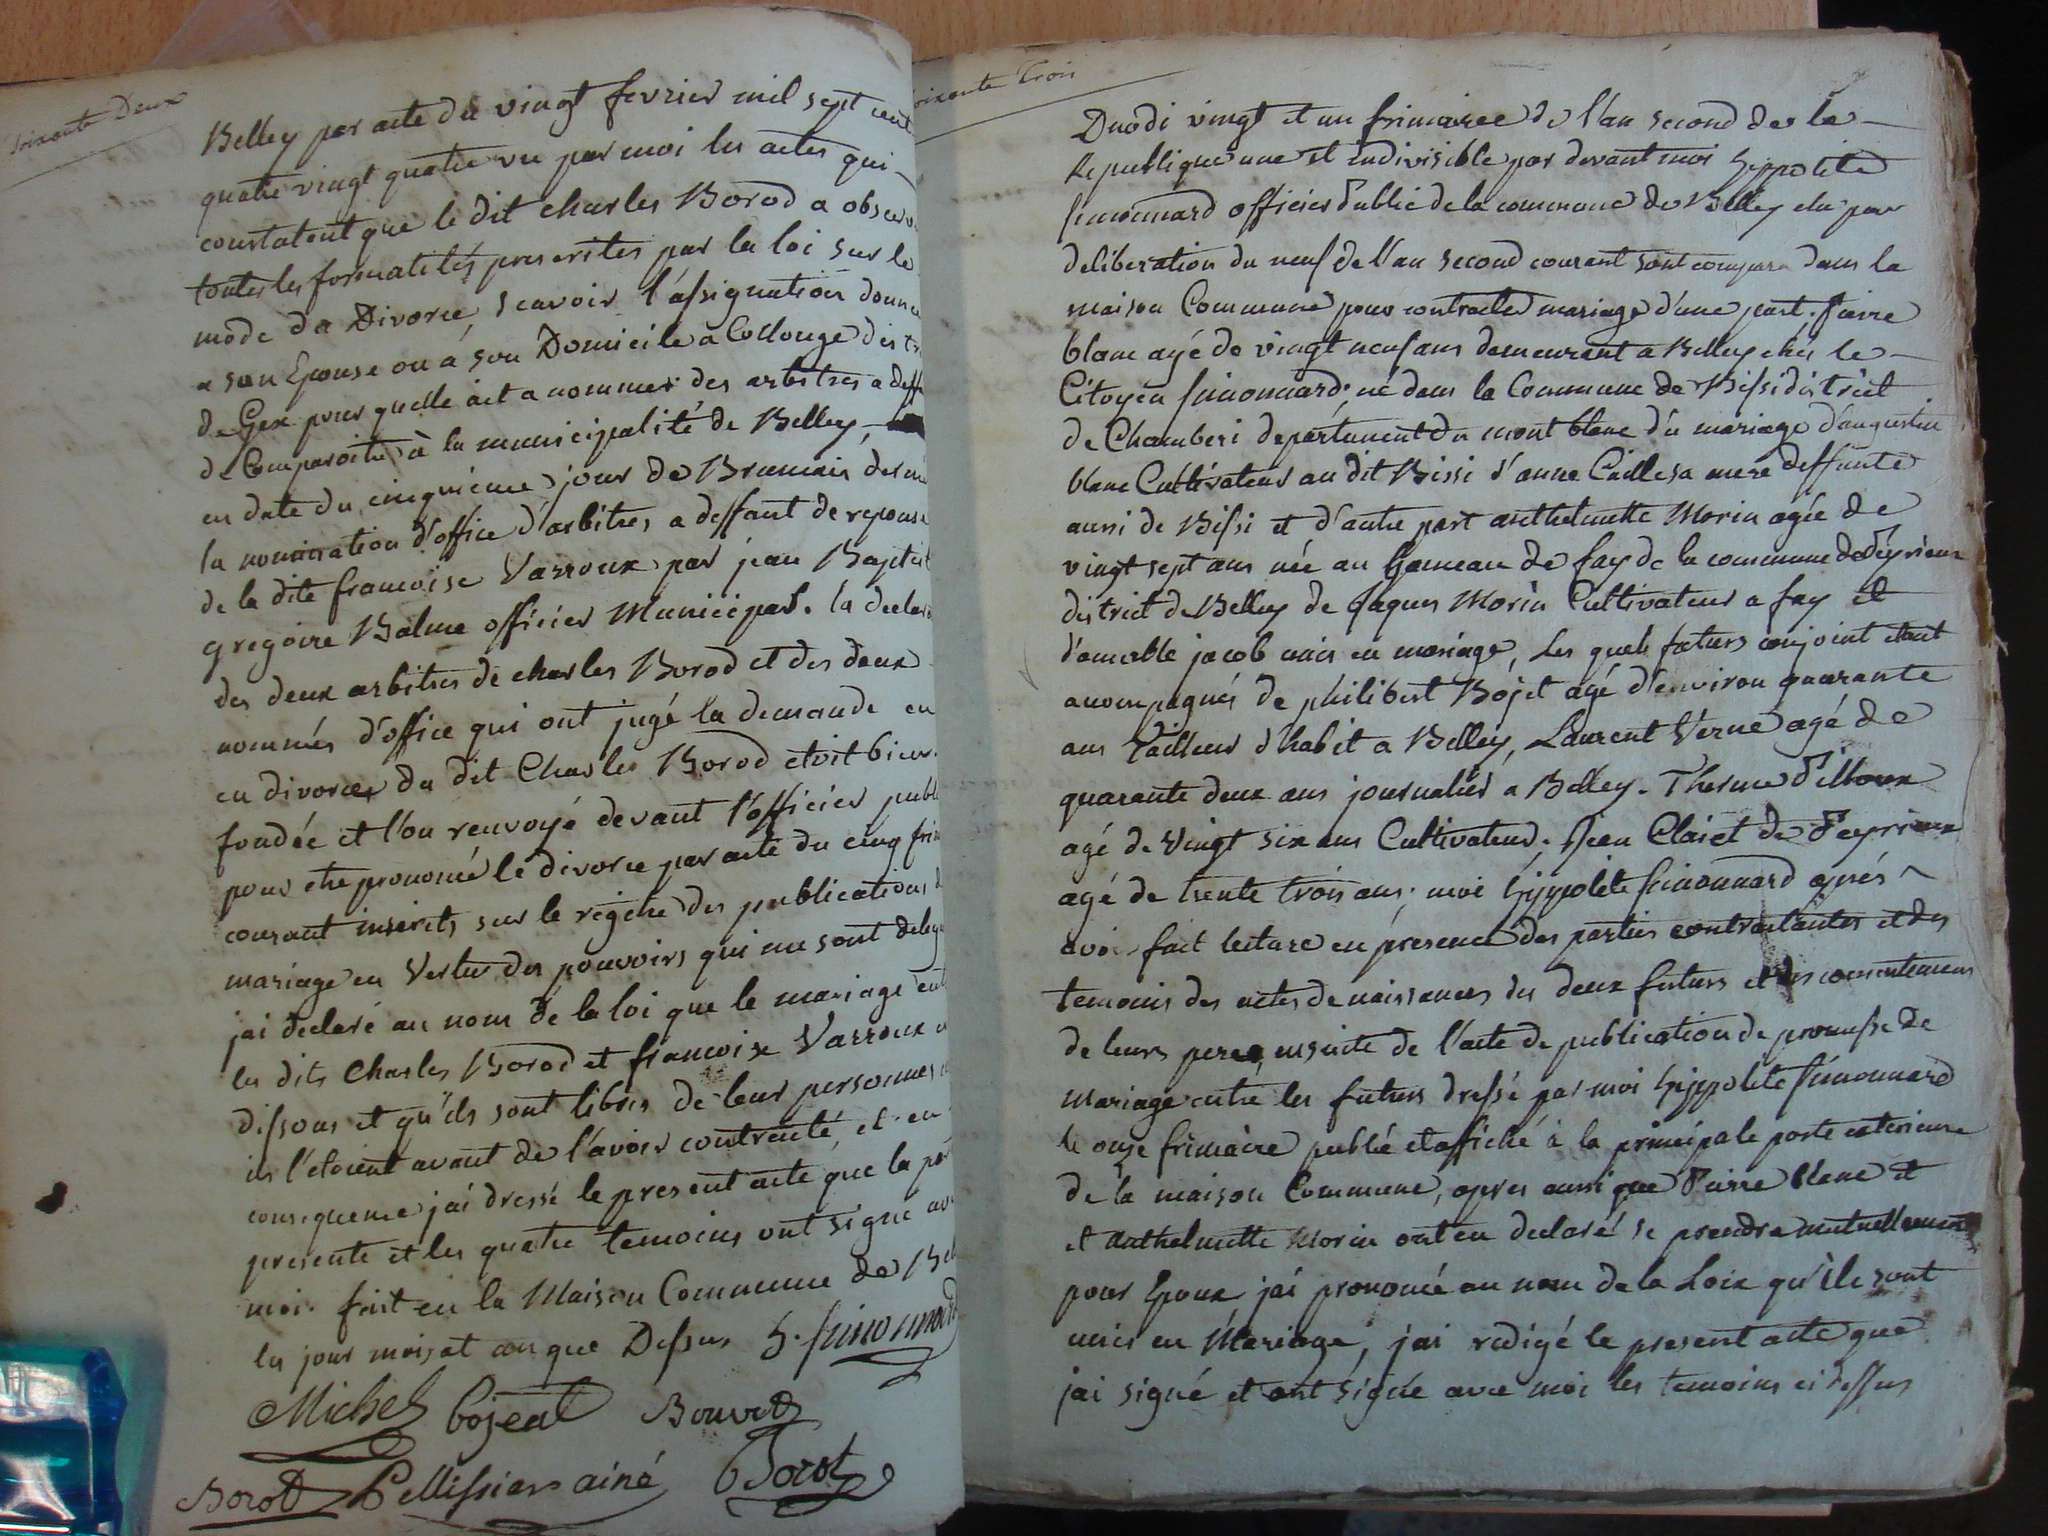 Soixante Deux
Belley par acte du vingt fevrier mil sept cent
quatre vingt quatre vu par moi les actes qui
constatent que le dit charles Borod a observ
toutes les formalités prescrites par la loi sur le
mode du Divorce, scavoir l'assignation donn
a son Epouse ou à son Domicile a Collonge dist
de Gex pour quelle ait a nommer des arbitres a deff
de Comparoitre à la municipalité de Belley,
en date du cinquieme jour de Brumair dernie
la nomination d'office d'arbitres, a deffaut de reponse
de la dite francoise Varroux par jean Baptist
gregoire Balme officier Municipal. la declar
des deux arbitres de charles Borod et des deux
nommés d'office qui ont jugé la demande en
en divorce du dit Charles Borod etoit bien
fondée et l'on renvoyé devant l'officier publ
pour etre prononcé le divorce par acte du cinq frim
courant inserits sur le régitre des publications d
mariage en Vertu des pouvoirs qui me sont delegu
jai declaré au nom de la loi que le mariage ent
les dits Charles Borod et francoise Varroux
dissous et qu'ils sont libres de leur personnes
ils l'etoient avant de l'avoir contracté, et en
consequence jai dressé le present acte que la par
presente et les quatre temoins ont signé av
moi. fait en la Maison Commune de Bel
les jour mois et an que Dessus h. simonnard
Michel Bojeat Bouvet
Borod Pellissier ainé Borot
soixante trois
Duodi vingt et un frimaire de l'an second de la
Republique une et indivisible par devant moi hippolite
simonnard officier Public de la commune de Belley elu par
deliberation du neuf de l'an second courant sont comparu dans la
maison Commune pour contracter mariage d'une part. pierre
blanc agé de vingt neuf ans demeurant a Belley chés le
Citoyen simonnard, né dans la Commune de Bissi district
de Chamberi departement du mont blanc du mariage d'augustin
blanc Cultivateur au dit Bissi d'anne Caille sa mere deffunte
aussi de Bissi et d'autre part anthelmette Morin agée de
vingt sept ans née au hameau de fay de la commune de Peyrieux
district de Belley de Jaques Morin Cultivateur a fay et
d'aimable jacob unis en mariage, Les quels futurs conjoint etant
accompagnés de philibert Bojet agé d'environ quarante
ans Tailleur d'habit a Belley, Laurent Verne agé de
quarante deux ans journalier a Belley. Therme Pilloux
agé de vingt six ans Cultivateur. Jean Clairet de Peyrieux
agé de trente trois ans; moi hippolite simonnard aprés
avoir fait lecture en presence des parties contractantes et des
temoins des actes de naissances des deux futurs et des consentemens
de leurs peres, ensuite de l'acte de publication de promesse de
Mariage entre les futurs dressé par moi hippolite simonnard
le onze frimaire publié et affiché à la principale porte exterieure
de la maison Commune, apres aussi que Pierre blanc et
et anthelmette Morin ont eu declaré se prendre mutuellement
pour Epoux jai prononcé au nom de la Loix qu'ils sont
unis en Mariage, jai redigé le present acte que
jai signé et ont signée avec moi les temoins ci dessus